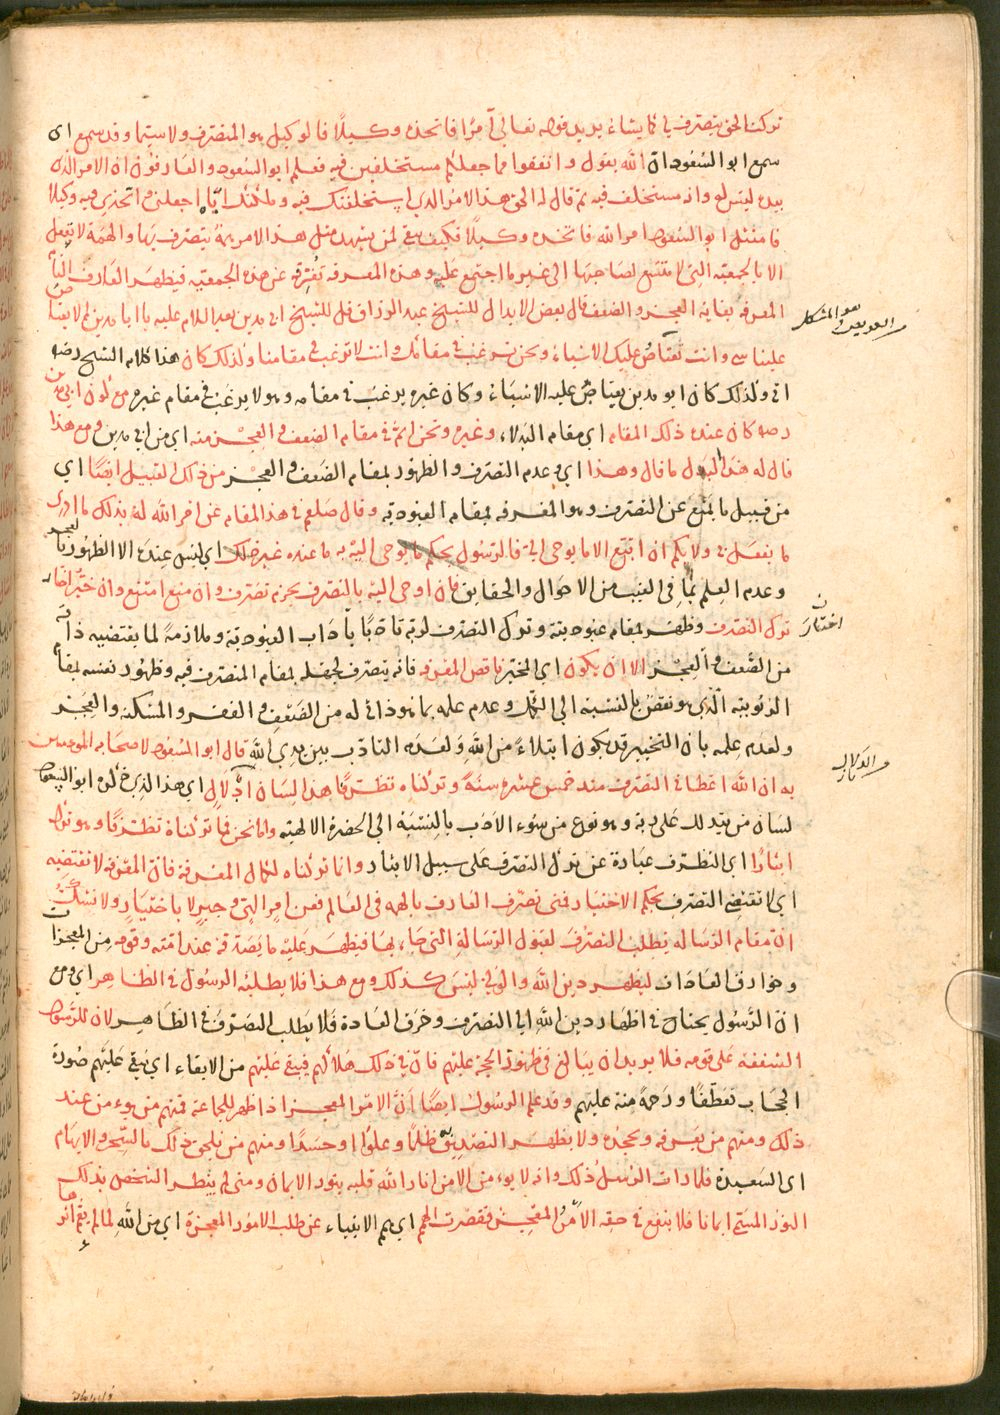 تركنا الحق يتصرف لنا كما يشاء يريد قوله تعالى آمرا فاتخذه وكيلا فالوكيل هو المتصرف ولا سيما وقد سمع اى
سمع ابو السعود ان الله يقول وانفقوا مما جعلكم مستخلفين فيه فعلم ابو السعود والعارفون ان الامر الذى
بيده ليس له وانه مستخلف فيه ثم قال له الحق هذا الامر الذى استخلفتك فيه وملكتك اياه اجعلنى واتخذنى فيه وكيلا
فامتثل ابو السعود امر الله فاتخذه وكيلا فكيف يبقى لمن يشهد مثل هذا الامر همة يتصرف بها والهمة لا تفعل
الا بالجمعية التى لا متسع لصاحبها الى غير ما اجتمع عليه وهذه المعرفة تفرقه عن هذه الجمعية فيظهر العارف التام
المعرفة بغاية العجز والضعف قال بعض الابدال للشيخ عبد الرزاق قل للشيخ ابى مدين بعد السلام عليه يا ابا مدين لم لا يعتاص
علينا شئ وانت تعتاص عليك الاشياء ونحن نرغب فى مقامك وانت لا ترغب فى مقامنا وكذلك كان هذا كلام الشيخ رضه
اى وكذلك كان ابو مدين يعتاص عليه الاشياء وكان غيره يرغب فى مقامه وهو لا يرغب فى مقام غيره مع كون ابى مدين
رضه كان عنده ذلك المقام اى مقام البدلاء وغيره ونحن اتم فى مقام الضعف والعجز منه اى من ابى مدين ومع هذا
قال له هذا البدل ما قال وهذا اى عدم التصرف والظهور بمقام الضعف والعجز من ذلك القبيل ايضا اى
من قبيل ما يمنع عن التصرف وهو المعرفة بمقام العبودية وقال صلعم فى هذا المقام عن امر الله له بذلك ما ادرى
ما يفعل بى ولا بكم ان اتبع الا ما يوحى الى فالرسول بحكم ما يوحى اليه به ما عنده غير ذلك اى ليس عنده الا الظهور بالعجز
وعدم العلم بما فى الغيب من الاحوال والحقايق فان اوحى اليه بالتصرف بجزم تصرف وان منع امتنع وان خير اختار
ترك التصرف وظهر بمقام عبوديته وترك التصرف لربه تادبا بآداب العبودية وملازمة لما يقتضيه ذاته
من الضعف والعجز الا ان يكون اى المخير ناقص المعرفة فانه يتصرف لجهله بمقام المتصرف فيه وظهور نفسه بمقام
الربوبية الذى هو نقص بالنسبة الى الكمل وعدم علمه بما هو ذاتى له من الضعف والفقر والمسكنة والعجز
ولعدم علمه بان التخيير قد يكون ابتلاء من الله ولعدم التادب بين يدى الله قال ابو السعود لاصحابه المؤمنين
به ان الله اعطانى التصرف منذ خمس عشرة سنة وتركناه تظرفا هذا لسان ادلال اى هذا الذى ذكره ابو السعود
لسان من يتدلل على ربه وهو نوع من سوء الادب بالنسبة الى الحضرة الالهية واما نحن فما تركناه تظرفا وهو تركه
ايثارا اى التظرف عبارة عن ترك التصرف على سبيل الايثار وانما تركناه لكمال المعرفة فان المعرفة لا تقتضيه
اى لا تقتضى التصرف بحكم الاختيار فمتى تصرف العارف بالهمة فى العالم فعن امر الهى وجبر لا باختيار ولا نشك
ان مقام الرسالة يطلب التصرف لقبول الرسالة التى جاء بها فيظهر عليه ما يصدقه عند امته وقومه من المعجزات
وخوارق العادات ليظهر دين الله والولى ليس كذلك ومع هذا فلا يطلبه الرسول فى الظاهر اى ومع
ان الرسول يحتاج فى اظهار دين الله الى التصرف وخرق العادة فلا يطلب التصرف فى الظاهر لان للرسول
الشفقة على قومه فلا يريد ان يبالغ فى ظهور الحجة عليهم فان فى ذلك هلاكهم فيبقى عليهم من الابقاء اى يبقى عليهم صورة
الحجاب تعطفا ورحمة منه عليهم وقد علم الرسول ايضا ان الامر المعجز اذا ظهر للجماعة فمنهم من يؤمن عند
ذلك ومنهم من يعرفه ويجحده ولا يظهر التصديق به ظلما وعلوا وحسدا ومنهم من يلحق ذلك بالسحر والايهام
اى الشعبدة فلما رات الرسل ذلك وانه لا يؤمن الا من انار الله قلبه بنور الايمان ومتى لم ينظر الشخص بذلك
النور المسمى ايمانا فلا ينفع فى حقه الامر المعجز فقصرت الهمم اى همم الانبياء عن طلب الامور المعجزة اى من الله لما لم يعم اثرها
هو المشكل
العويص
اختار
الادلال